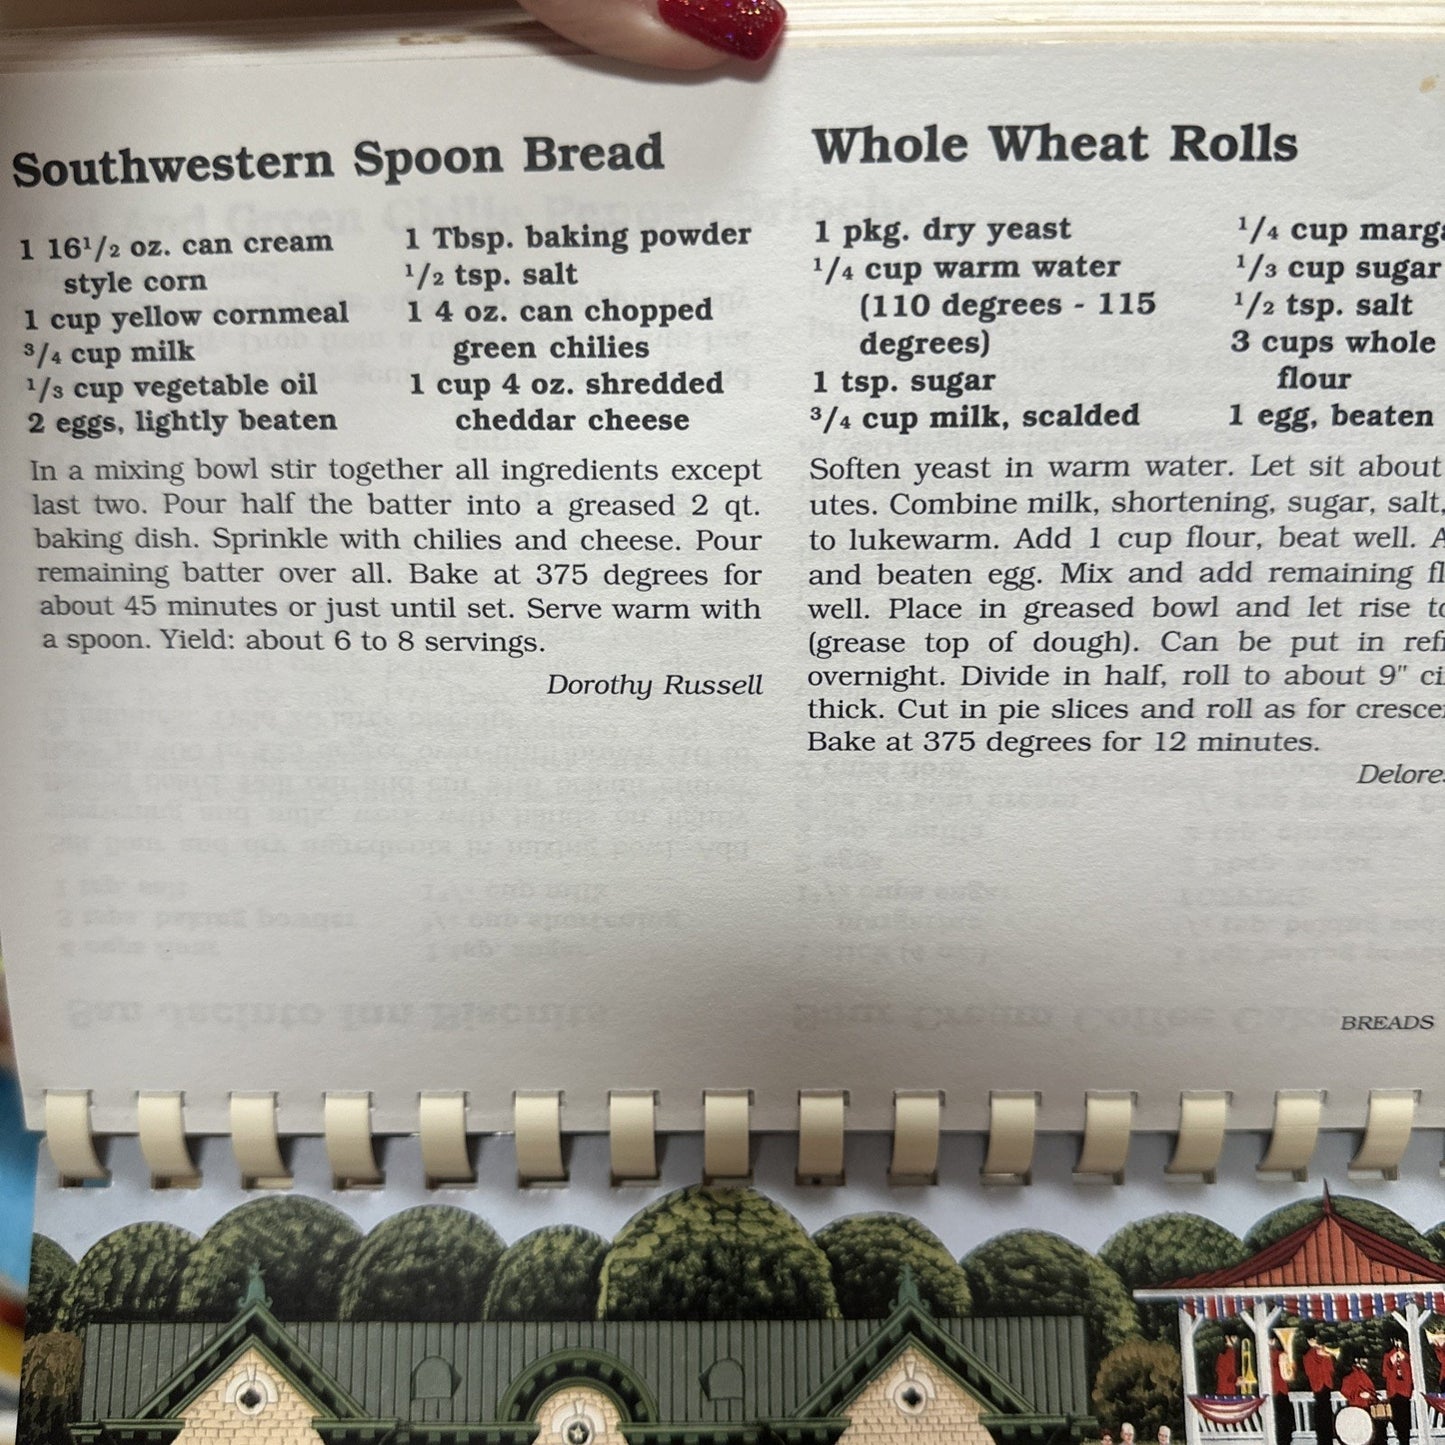 Southwestern Spoon Bread
1 16 1/2 oz. can cream
style corn
1 cup yellow cornmeal
3/4 cup milk
1/3 cup vegetable oil
2 eggs, lightly beaten
1 Tbsp. baking powder
1/2 tsp. salt
1 4 oz. can chopped
green chilies
1 cup 4 oz. shredded
cheddar cheese
In a mixing bowl stir together all ingredients except
last two. Pour half the batter into a greased 2 qt.
baking dish. Sprinkle with chilies and cheese. Pour
remaining batter over all. Bake at 375 degrees for
about 45 minutes or just until set. Serve warm with
a spoon. Yield: about 6 to 8 servings.
Dorothy Russell
Whole Wheat Rolls
1 pkg. dry yeast
1/4 cup warm water
(110 degrees - 115
degrees)
1 tsp. sugar
3/4 cup milk, scalded
1/4 cup marga
1/3 cup sugar
1/2 tsp. salt
3 cups whole
flour
1 egg, beaten
Soften yeast in warm water. Let sit about
utes. Combine milk, shortening, sugar, salt,
to lukewarm. Add 1 cup flour, beat well. A
and beaten egg. Mix and add remaining fl
well. Place in greased bowl and let rise to
(grease top of dough). Can be put in refr
overnight. Divide in half, roll to about 9" ci
thick. Cut in pie slices and roll as for cresce
Bake at 375 degrees for 12 minutes.
Delores
BREADS